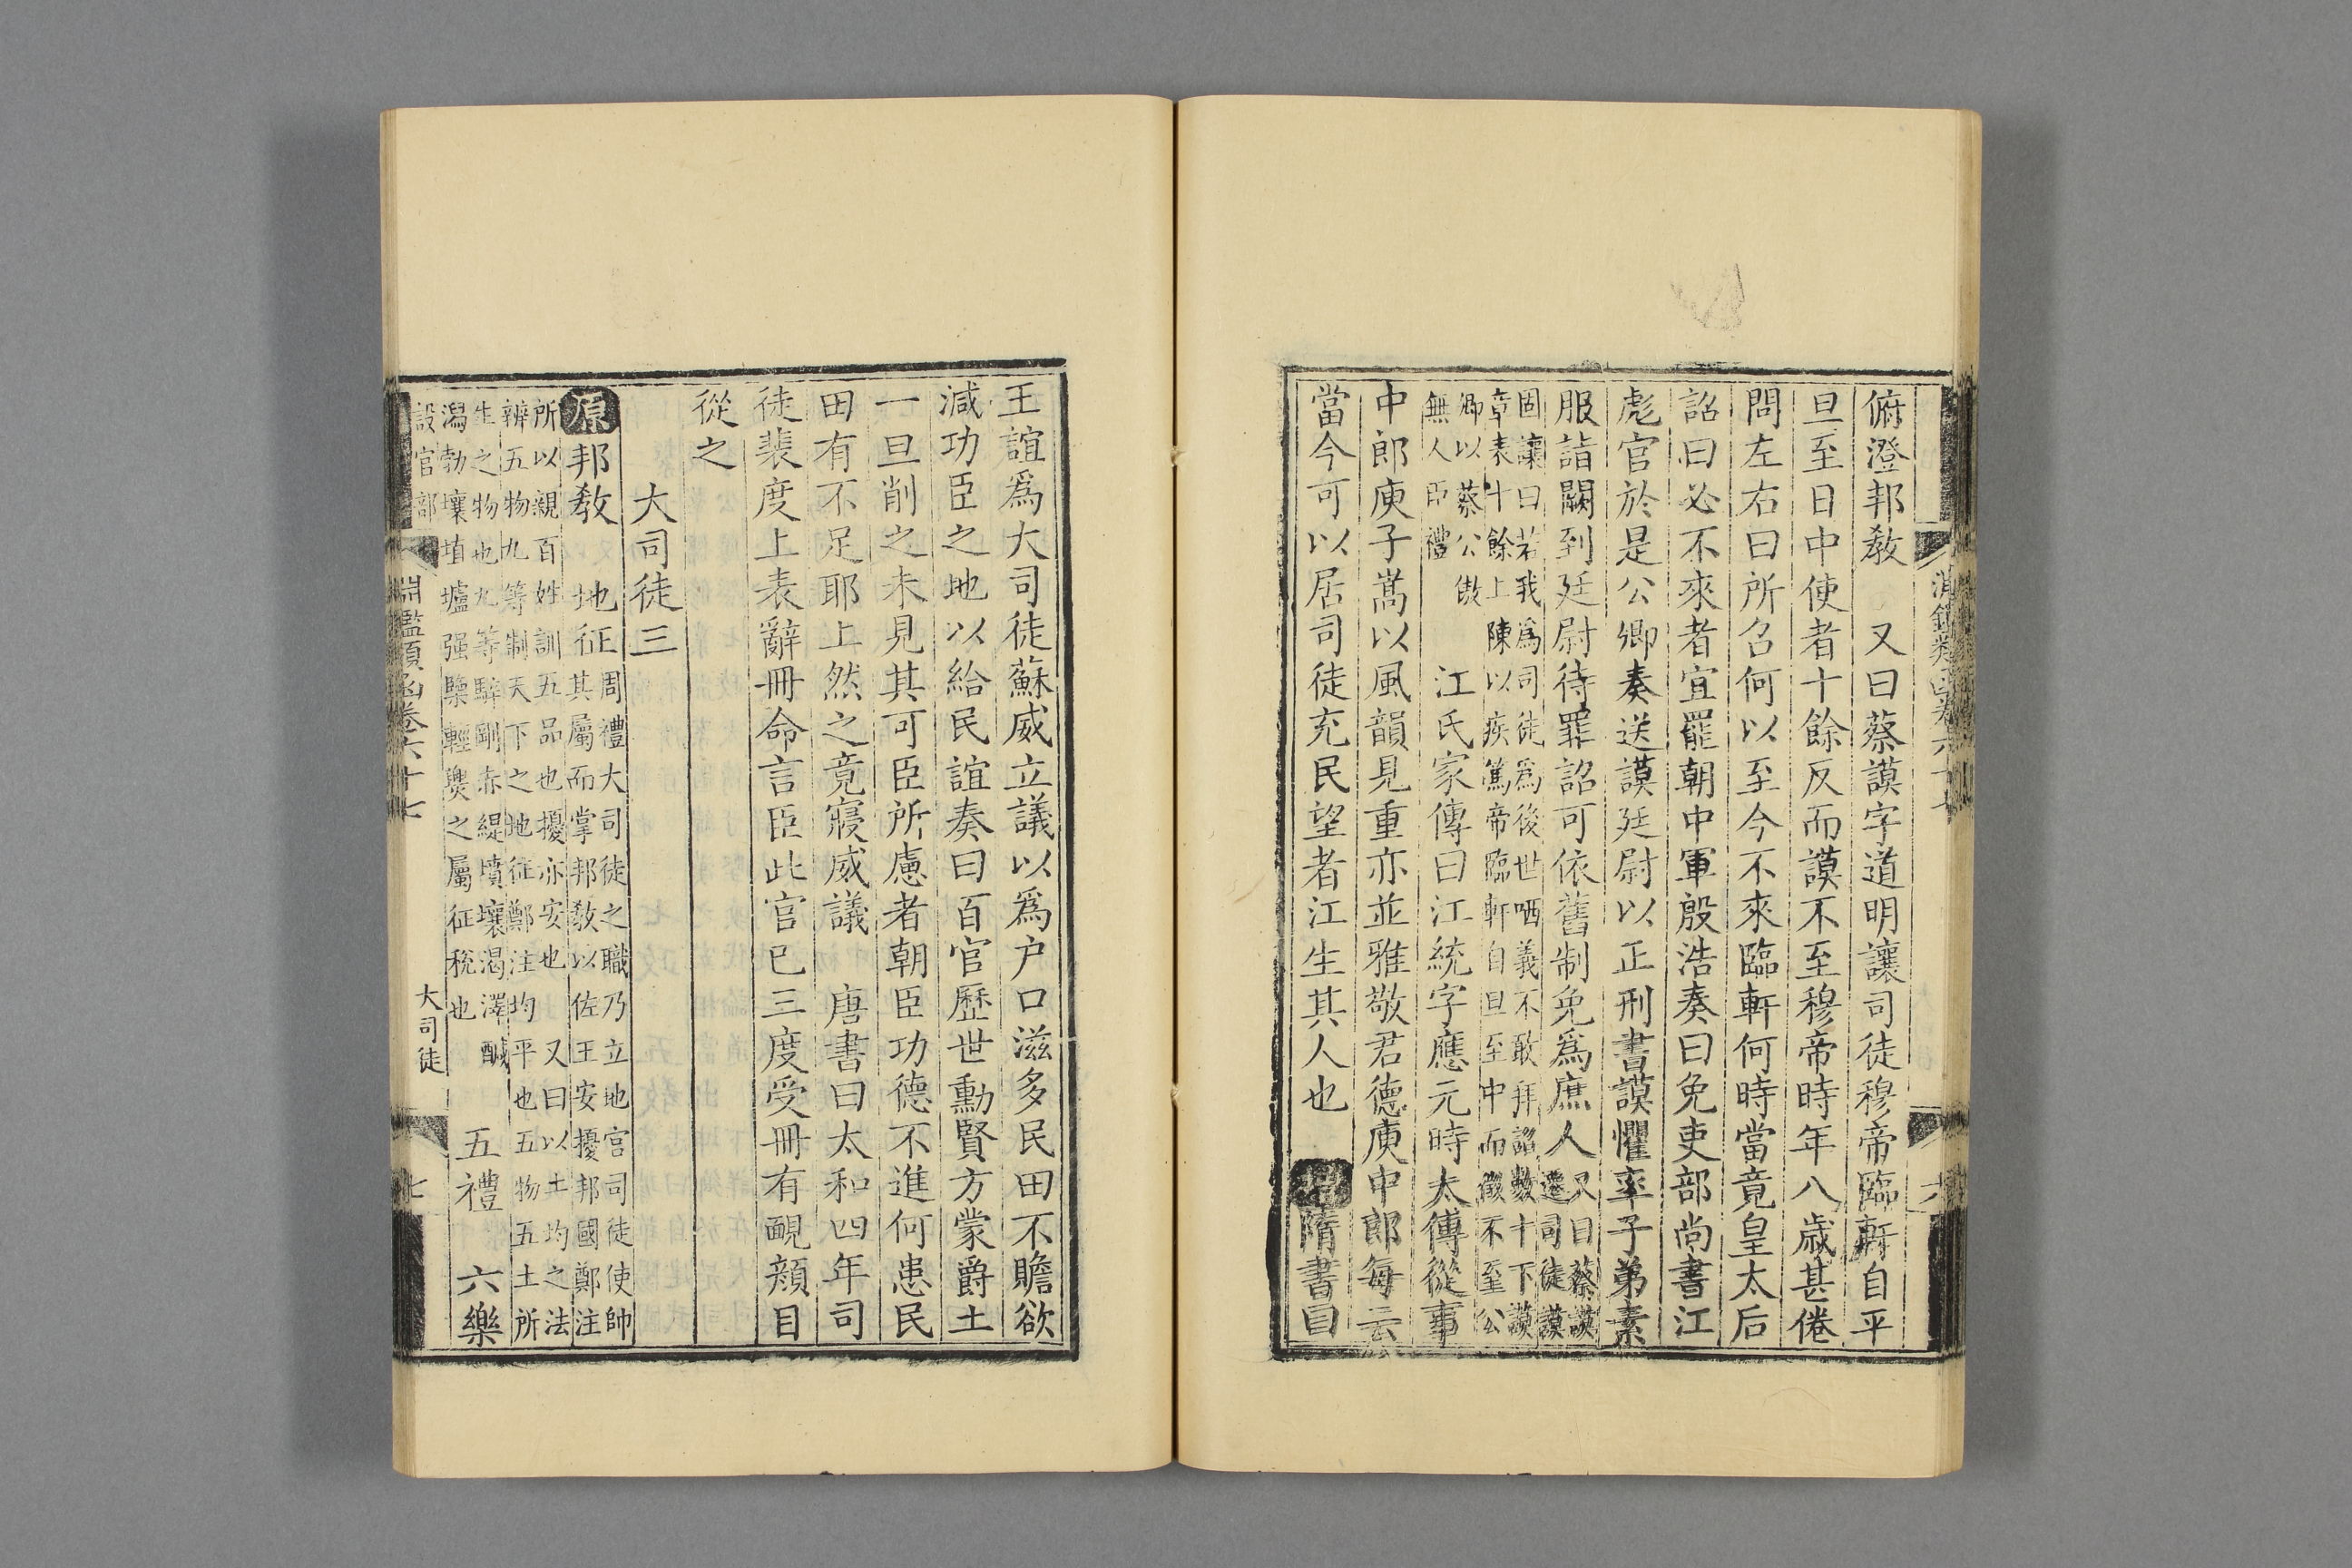 俯澄邦教　又曰蔡謨字道明讓司徒穆帝臨軒自平
旦至日中使者十餘反而謨不至穆帝時年八歲甚倦
問左右曰所召何以至今不來臨軒何時當竟皇太后
詔曰必不來者宜罷朝中軍殷浩奏曰免吏部尚書江
彪官於是公卿奏送謨廷尉以正刑書謨懼率子弟素
服詣闕到廷尉待罪詔可依舊制免爲庶人又曰蔡謨
遷司徒謨
固讓曰若我爲司徒爲後世哂義不敢拜詔數十下謨
章表十餘上陳以疾篤帝臨軒自旦至中而徵不至公
卿以蔡公傲
無人臣禮　江氏家傳曰江統字應元時太傅從事
中郎庾子嵩以風韻見重亦並雅敬君德庾中郎每云
當今可以居司徒充民望者江生其人也　隋書曰
王誼爲大司徒蘇威立議以爲户口滋多民田不贍欲
減功臣之地以給民誼奏曰百官歷世勳賢方蒙爵土
一旦削之未見其可臣所慮者朝臣功德不進何患民
田有不足耶上然之竟寢威議　唐書曰太和四年司
徒裴度上表辭冊命言臣此官已三度受冊有靦顏目
從之
大司徒三
原邦教　地征周禮大司徒之職乃立地官司徒使帥
其屬而掌邦教以佐王安擾邦國鄭注
所以親百姓訓五品也擾亦安也　又曰以土均之法
辨五物九等制天下之地征鄭注均平也五物五土所
生之物也九等騂剛赤緹墳壤渴澤鹹
潟勃壤埴壚强㯺輕㷠之屬征稅也　五禮　六樂
設官部
淵鑑類函卷六十七
大司徒
七